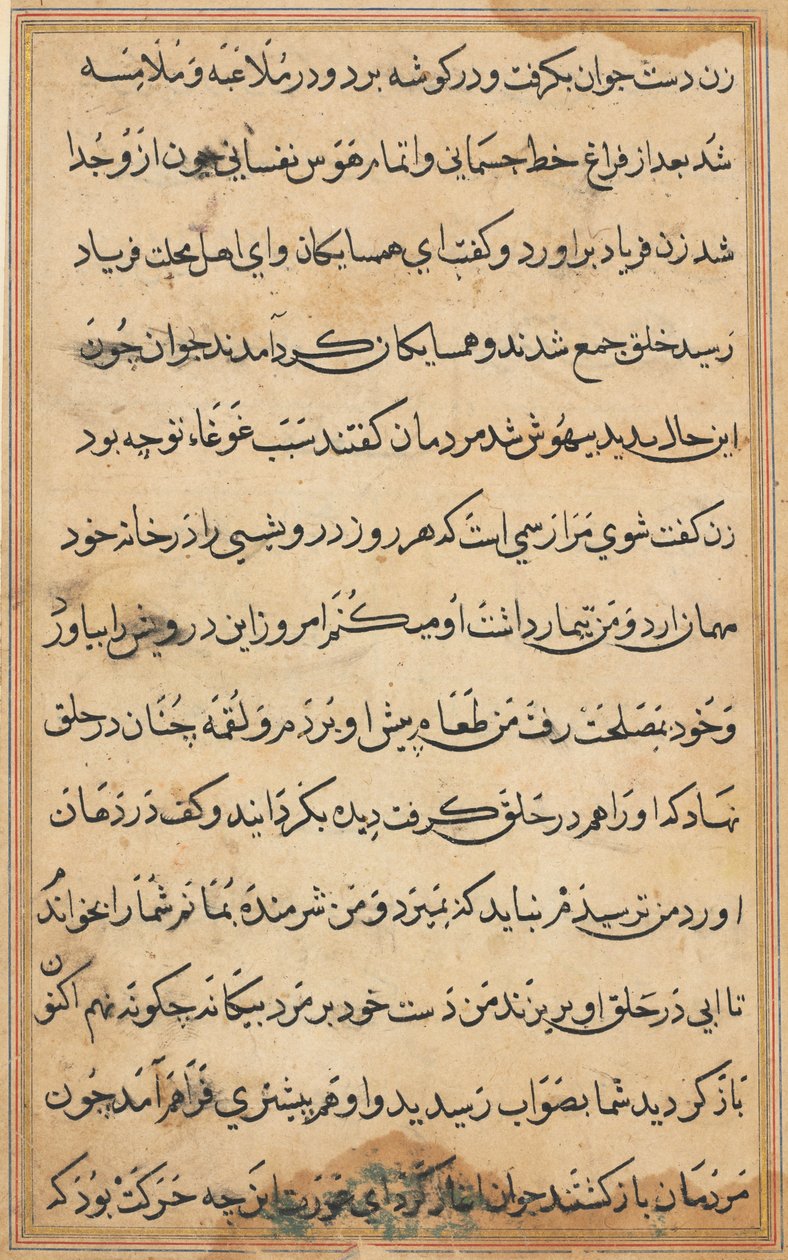 زن دست جوان بکرفت و در کوشه برد و در مُلَاعَبَه وَ مُلَامِسَه
شُد بعد از فراغ خط جسمَانی و اتمام هَوَس نفسانی چون ازو جُدا
شد زن فریاد براورد و کفت ای همسایکان و ای اهل محلت فریاد
رَسید خلق جمع شدند و همسایکان کرد آمدند جوان چُونَ
این حال بدید بیهُوش شد مردمان کفتند سَبَبَ غَوَغَاء تو چه بود
زن کفت شوی مَرَا رَسمی است که هر روز درویشیی را دَر خانه خود
مهمان ارد وَ مَن تیمار داشتُ اُو میکُنَمَ امروز این درویش را بیاورد
وَ خُود بمَصَلحَتَ رفتَ مَن طَعَام پیش او بَرَدَم وَ لُقمَه چُنَان در حلق
نهاد که او رَا هم در حَلَق کرفت دِیده بکَردَانید و کف دَر دَهَانَ
اورد من ترسیدَم نباید که بمَیرَد وَ مَن شرمندَه بمَانَم شُمَا را بخواندَم
تا ابی دَر حَلق او بریزَند مَن دَست خود بر مَرد بیکَانَه چکونَه نهم اکنون
بَازَ کردید شما بصَوَاب رَسیدید و او هم بیشتری فَرَاهَم آمَد چُون
مَردمَان باز کشتَند جوان اغاز کَرد ای عَورَت این چه حَرَکَت بُوَد که